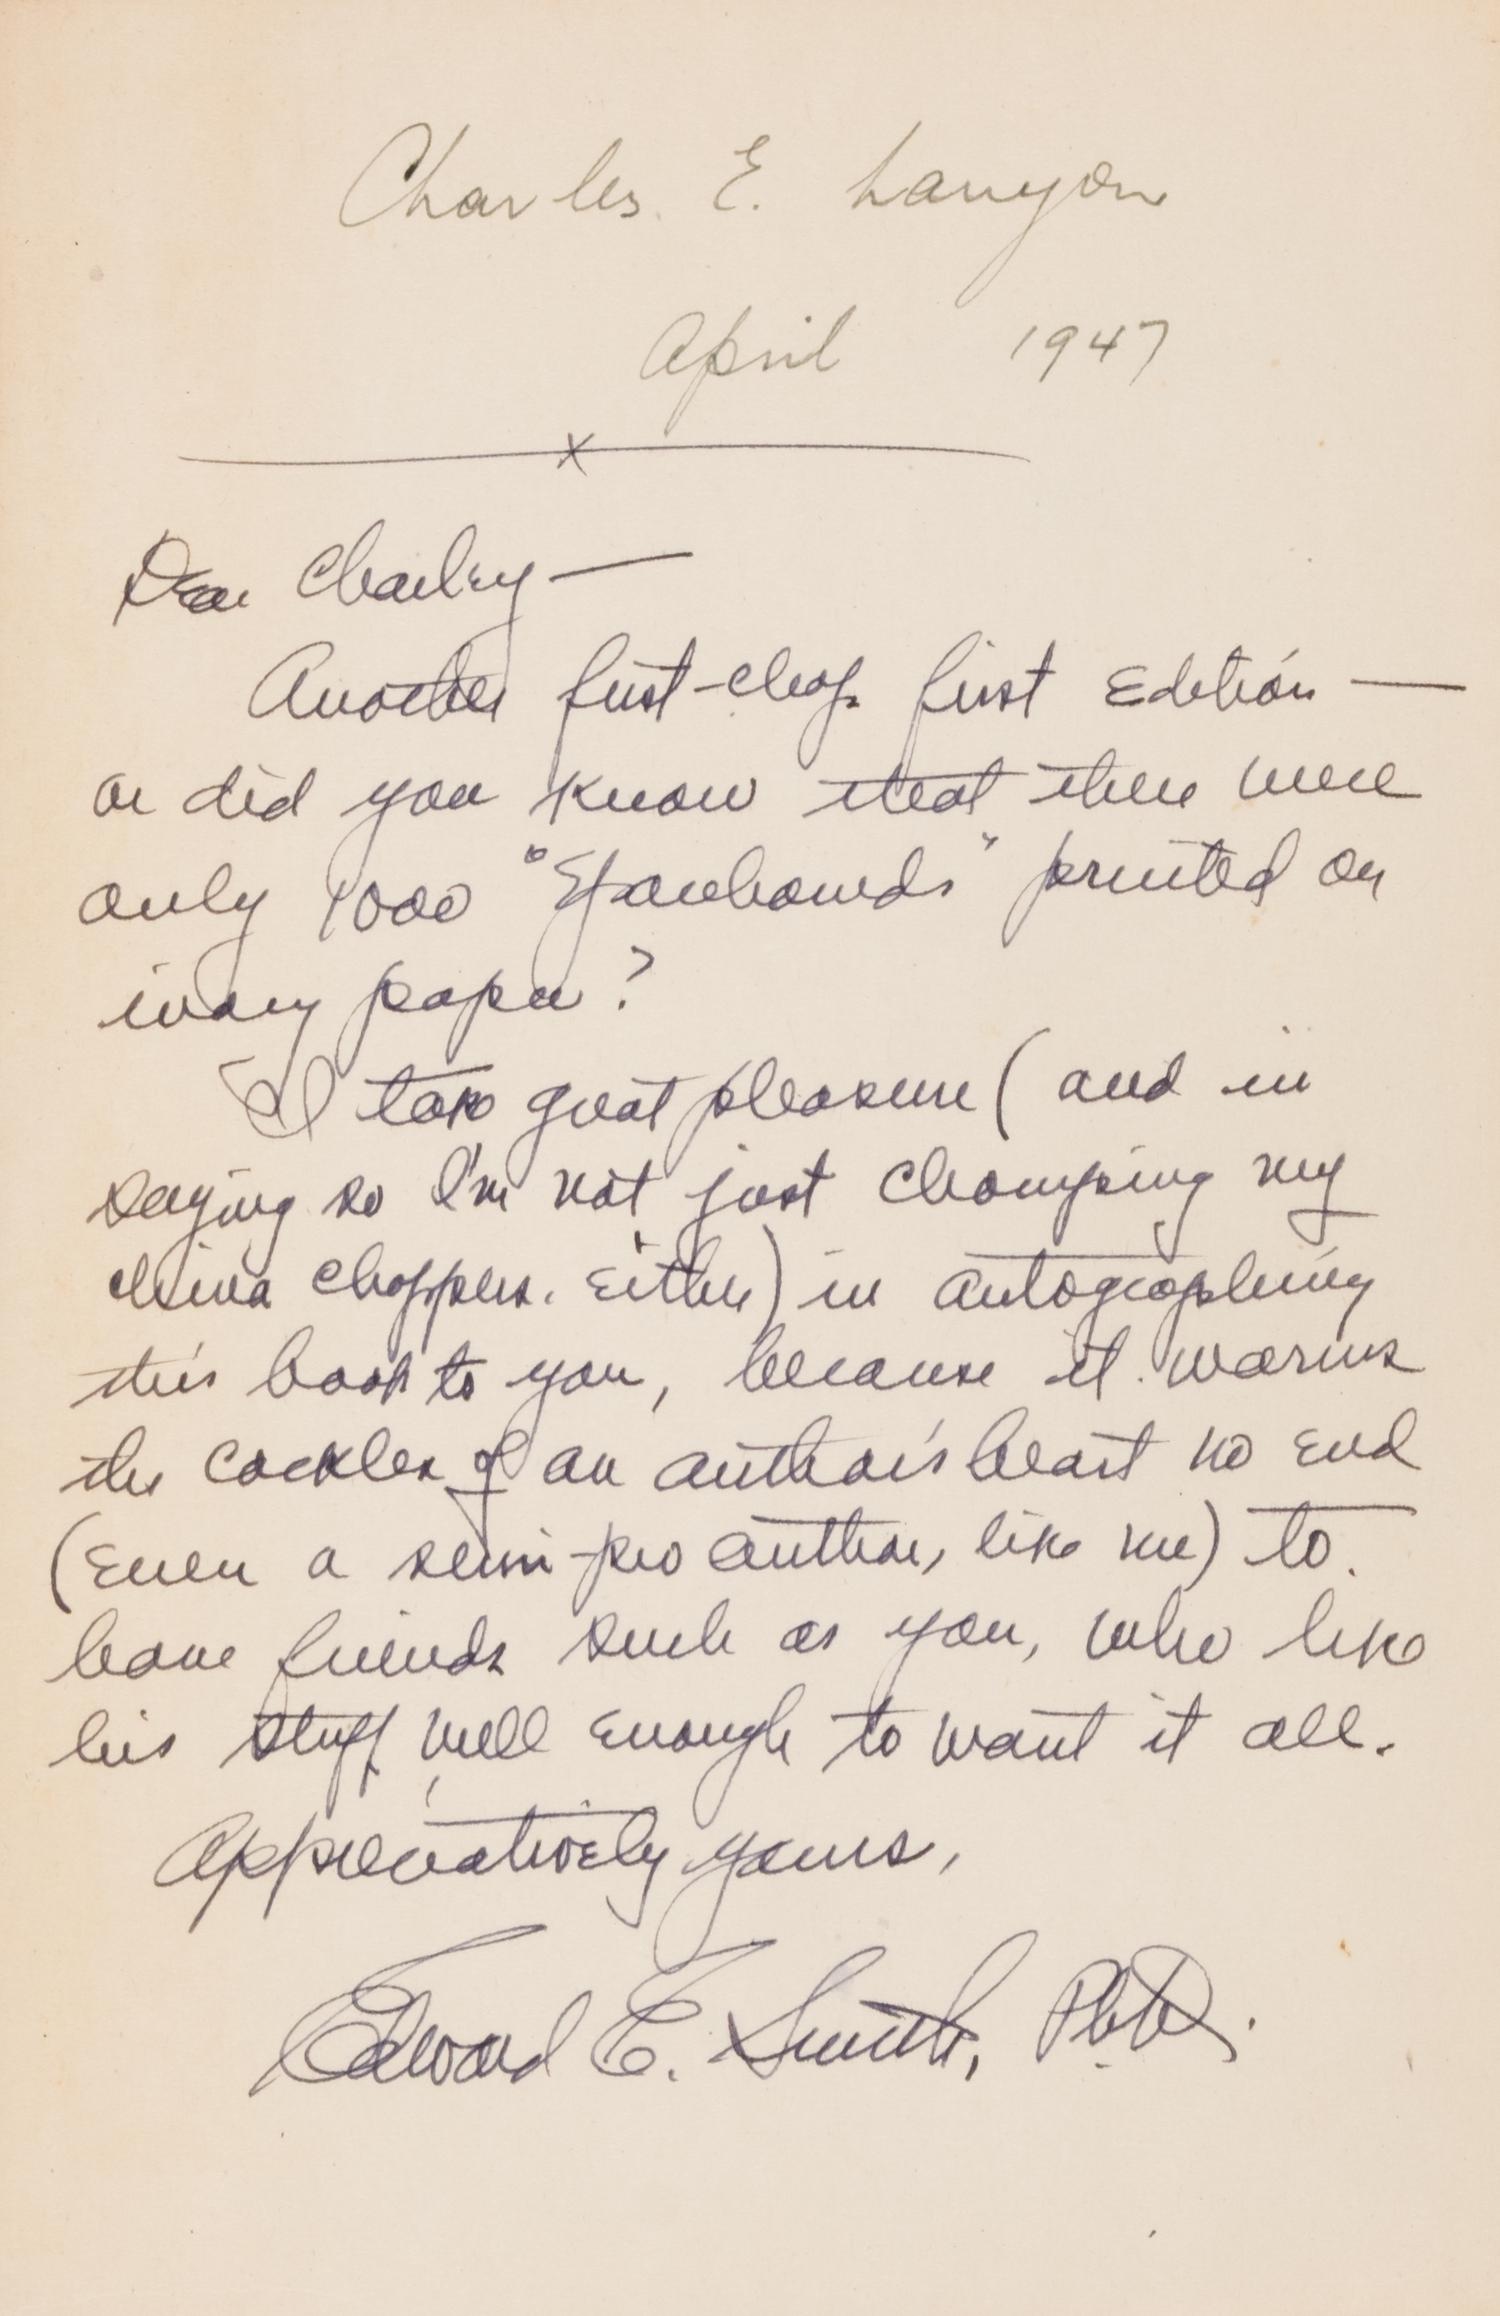 Charles E. Lanyon
April 1947
x
Dear Charley —
Another first-chop first edition —
or did you know that there were
only 1000 "Spacehounds" printed on
ivory paper?
I take great pleasure (and in
saying so I'm not just chomping my
china choppers, either) in autographing
this book to you, because it warms
the cockles of an author's heart no end
(even a semi-pro author, like me) to
have friends such as you, who like
his stuff well enough to want it all.
Appreciatively yours,
Edward E. Smith, PhD.